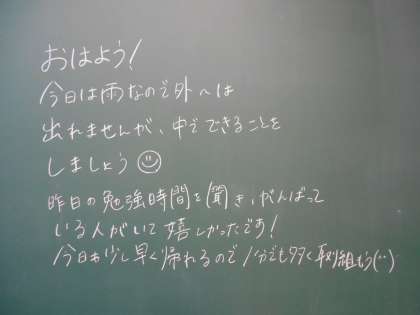 おはよう!
今日は雨なので外へは
出れませんが、中でできることを
しましょう☺
昨日の勉強時間を聞き、がんばって
いる人がいて嬉しかったです!
今日も少し早く帰れるので1分でも多く取り組もう(¨)